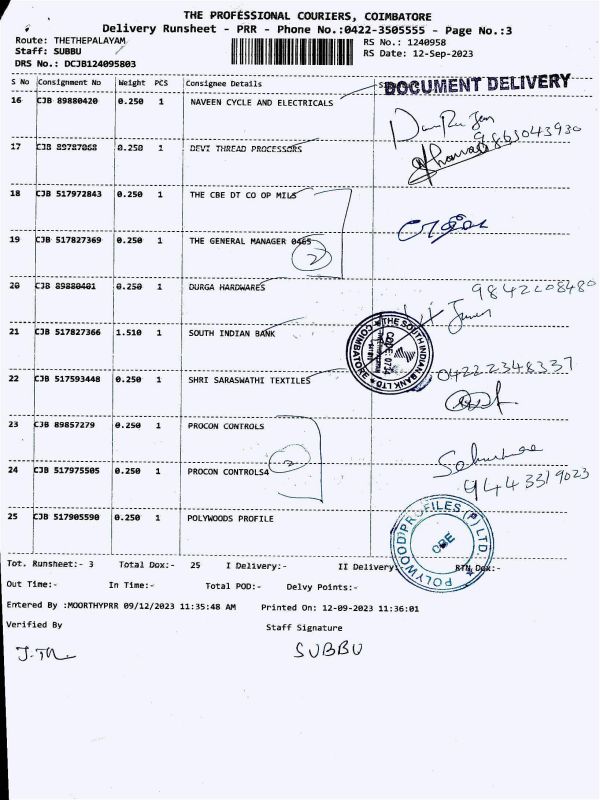 THE PROFESSIONAL COURIERS, COIMBATORE
Delivery Runsheet - PRR - Phone No.:0422-3505555 - Page No.:3
Route: THETHEPALAYAM
RS No.: 1240958
Staff: SUBBU
RS Date: 12-Sep-2023
DRS No.: DCJB124095803
S No Consignment No Weight PCS Consignee Details
DOCUMENT DELIVERY
16 CJB 89880420 0.250 1 NAVEEN CYCLE AND ELECTRICALS
9863043930
17 CJB 89787068 0.250 1 DEVI THREAD PROCESSORS
18 CJB 517972843 0.250 1 THE CBE DT CO OP MILS
19 CJB 517827369 0.250 1 THE GENERAL MANAGER 0465
2
20 CJB 89880401 0.250 1 DURGA HARDWARES
9842208480
21 CJB 517827366 1.510 1 SOUTH INDIAN BANK
THE SOUTH INDIAN BANK LTD
COIMBATORE
04222348337
22 CJB 517593448 0.250 1 SHRI SARASWATHI TEXTILES
23 CJB 89857279 0.250 1 PROCON CONTROLS
2
24 CJB 517975505 0.250 1 PROCON CONTROLS4
9443319023
25 CJB 517905590 0.250 1 POLYWOODS PROFILE
POLYWOOD PROFILES (P) LTD.
CBE
Tot. Runsheet:- 3 Total Dox:- 25 I Delivery:- II Delivery:- RTN Dox:-
Out Time:- In Time:- Total POD:- Delvy Points:-
Entered By :MOORTHYPRR 09/12/2023 11:35:48 AM Printed On: 12-09-2023 11:36:01
Verified By Staff Signature
SUBBU